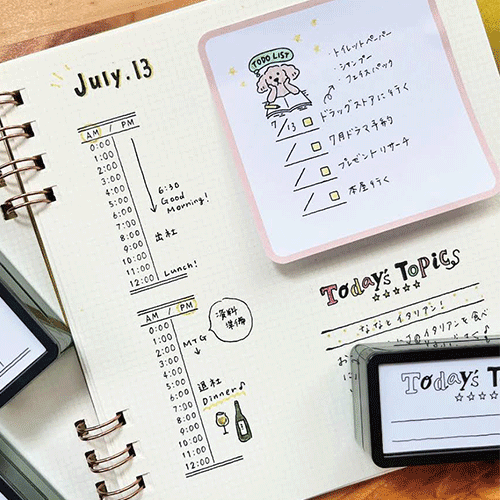 July.13
AM / PM
0:00
1:00
2:00
3:00
4:00
5:00
6:00
7:00
8:00
9:00
10:00
11:00
12:00
6:30
Good
Morning!
出社
Lunch!
AM / PM
0:00
1:00
2:00
3:00
4:00
5:00
6:00
7:00
8:00
9:00
10:00
11:00
12:00
MTG
資料
準備
退社
Dinner♪
TODO LIST
・トイレットペーパー
・シャンプー
・フェイスパック
7/13 ドラッグストアに行く
/ 7月ドラマ予約
/ プレゼントリサーチ
/ 本屋行く
Today's Topics
なんとイタリアン!
イタリアンを食べ
Today's T